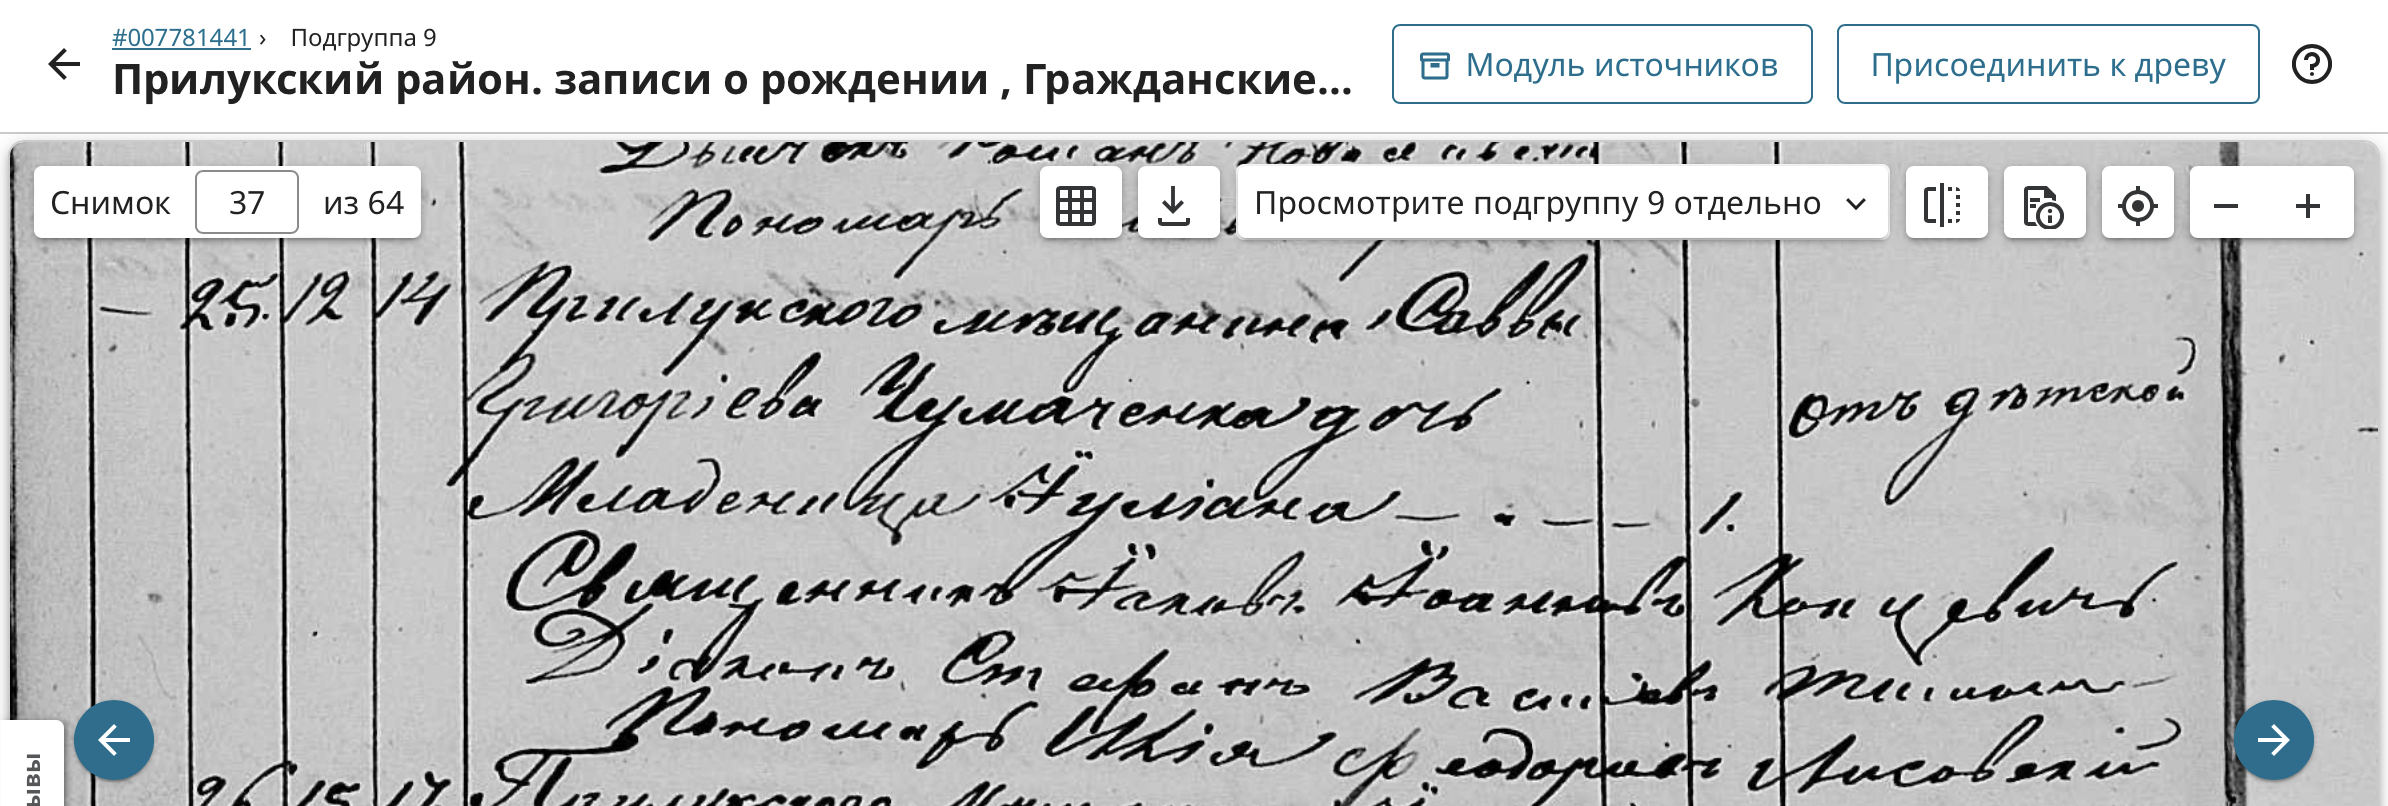 #007781441 › Подгруппа 9
Прилукский район. записи о рождении , Гражданские...
Модуль источников
Присоединить к древу
Снимок 37 из 64
Просмотрите подгруппу 9 отдельно
Пономарь
— 25. 12 14 Прилукского мѣщанина Саввы
Григоріева Чумаченка дочь
отъ дѣтской
Младеница Іуліана — - — — 1.
Священникъ Іаковъ Іоанновъ Концевичъ
Діаконъ Стефанъ Василіевъ
Пономарь Илія Феодоровъ Лисовскій
26 15 17 Прилукского
ывы